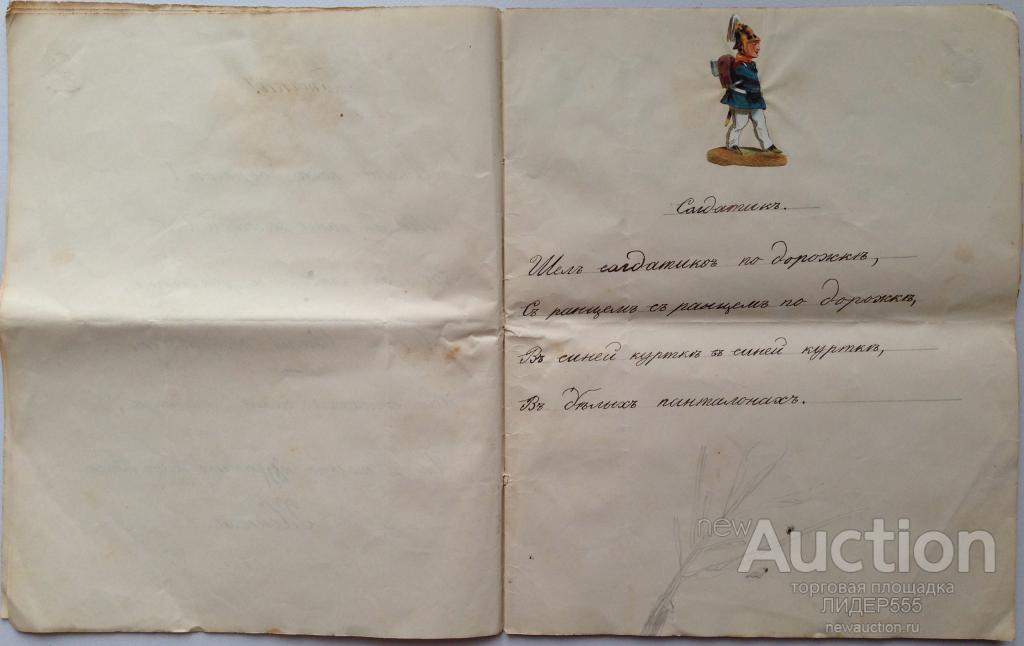 Солдатикъ.
Шелъ солдатикъ по дорожкѣ,
Съ ранцемъ съ ранцемъ по дорожкѣ,
Въ синей курткѣ въ синей курткѣ,
Въ бѣлыхъ панталонахъ.
newAuction
торговая площадка
ЛИДЕР555
newauction.ru